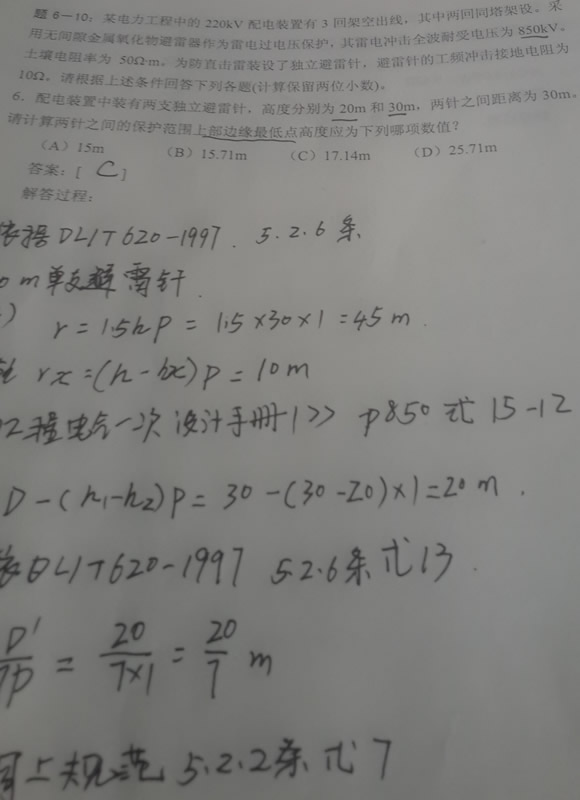 题 6-10：某电力工程中的 220kV 配电装置有 3 回架空出线，其中两回同塔架设。采
用无间隙金属氧化物避雷器作为雷电过电压保护，其雷电冲击全波耐受电压为 850kV。
土壤电阻率为 50Ω·m。为防直击雷装设了独立避雷针，避雷针的工频冲击接地电阻为
10Ω。请根据上述条件回答下列各题(计算保留两位小数)。
6．配电装置中装有两支独立避雷针，高度分别为 20m 和 30m，两针之间距离为 30m。
请计算两针之间的保护范围上部边缘最低点高度应为下列哪项数值？
（A）15m （B）15.71m （C）17.14m （D）25.71m
答案：[ C ]
解答过程：
依据 DL/T620-1997. 5.2.6 条
0m单支避雷针.
) r = 1.5hP = 1.5×30×1 = 45 m.
rx = (h-hx)P = 10m
工程电气一次设计手册1>> P850 式 15-12
D-(h1-h2)P = 30-(30-20)×1=20m.
DL/T620-1997 5.2.6条 式13.
D'/7P = 20/7×1 = 20/7 m
同上规范 5.2.2条 式7